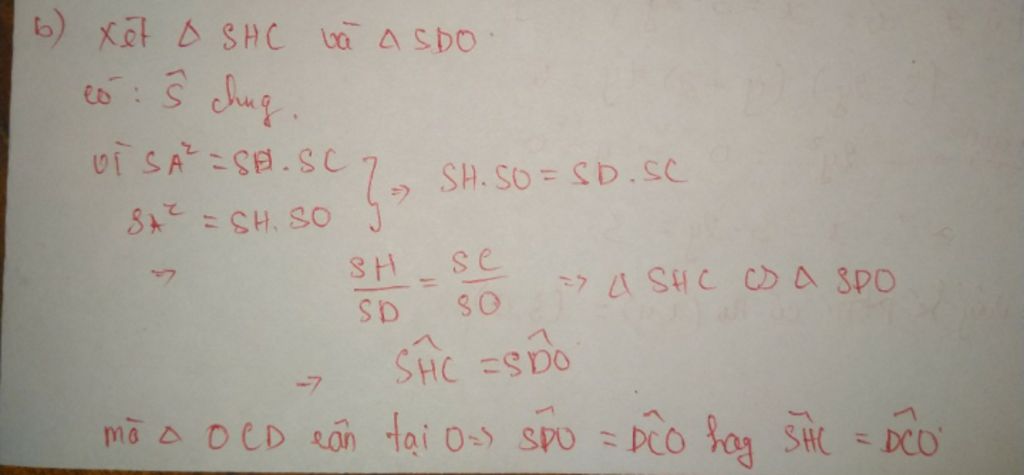 b) xét Δ SHC và Δ SDO.
có : Ŝ chung.
vì SA² = SD . SC } ⇒ SH.SO = SD.SC
SA² = SH. SO
⇒ SH/SD = SC/SO ⇒ Δ SHC ∽ Δ SDO
⇒ \widehat{SHC} = \widehat{SDO}
mà Δ OCD cân tại O ⇒ \widehat{SDO} = \widehat{DCO} hay \widehat{SHC} = \widehat{DCO}.